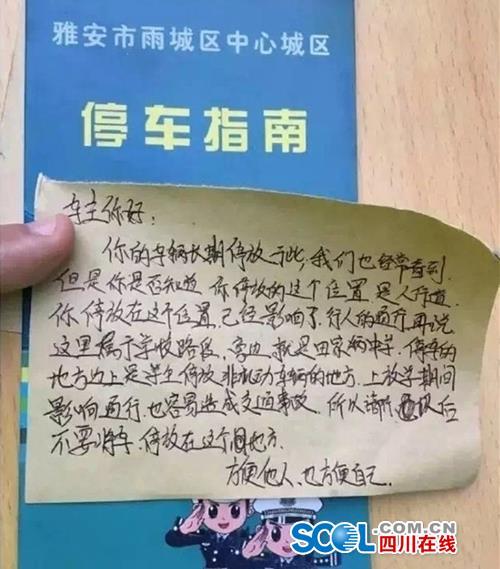 雅安市雨城区中心城区
停车指南
车主你好：
你的车辆长期停放于此，我们也经常看到.
但是你是否知道 你停放的这个位置是人行道.
你停放在这个位置，已经影响了行人的通行，再说
这里属于学校路段，旁边就是田家炳中学.停车的
地方边上是学生停放非机动车辆的地方.上放学期间
影响通行.也容易造成交通事故.所以请你以后
不要将车停放在这个地方.
方便他人.也方便自己.
SCOL.COM.CN
四川在线